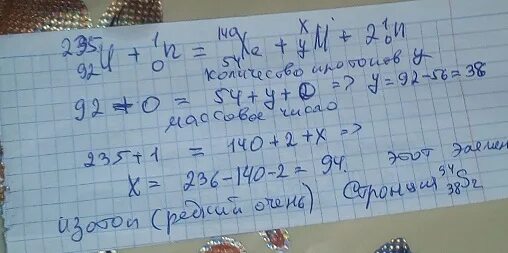 ²³⁵₉₂U + ¹₀n = ¹⁴⁰₅₄Xe + ˣᵧM + 2¹₀n
количество протонов y
92 + 0 = 54 + y + 0 => y = 92 - 56 = 38
массовое число
235 + 1 = 140 + 2 + x =>
x = 236 - 140 - 2 = 94. этот элемен
изотоп (редкий очень) стронция ⁹⁴₃₈Sr